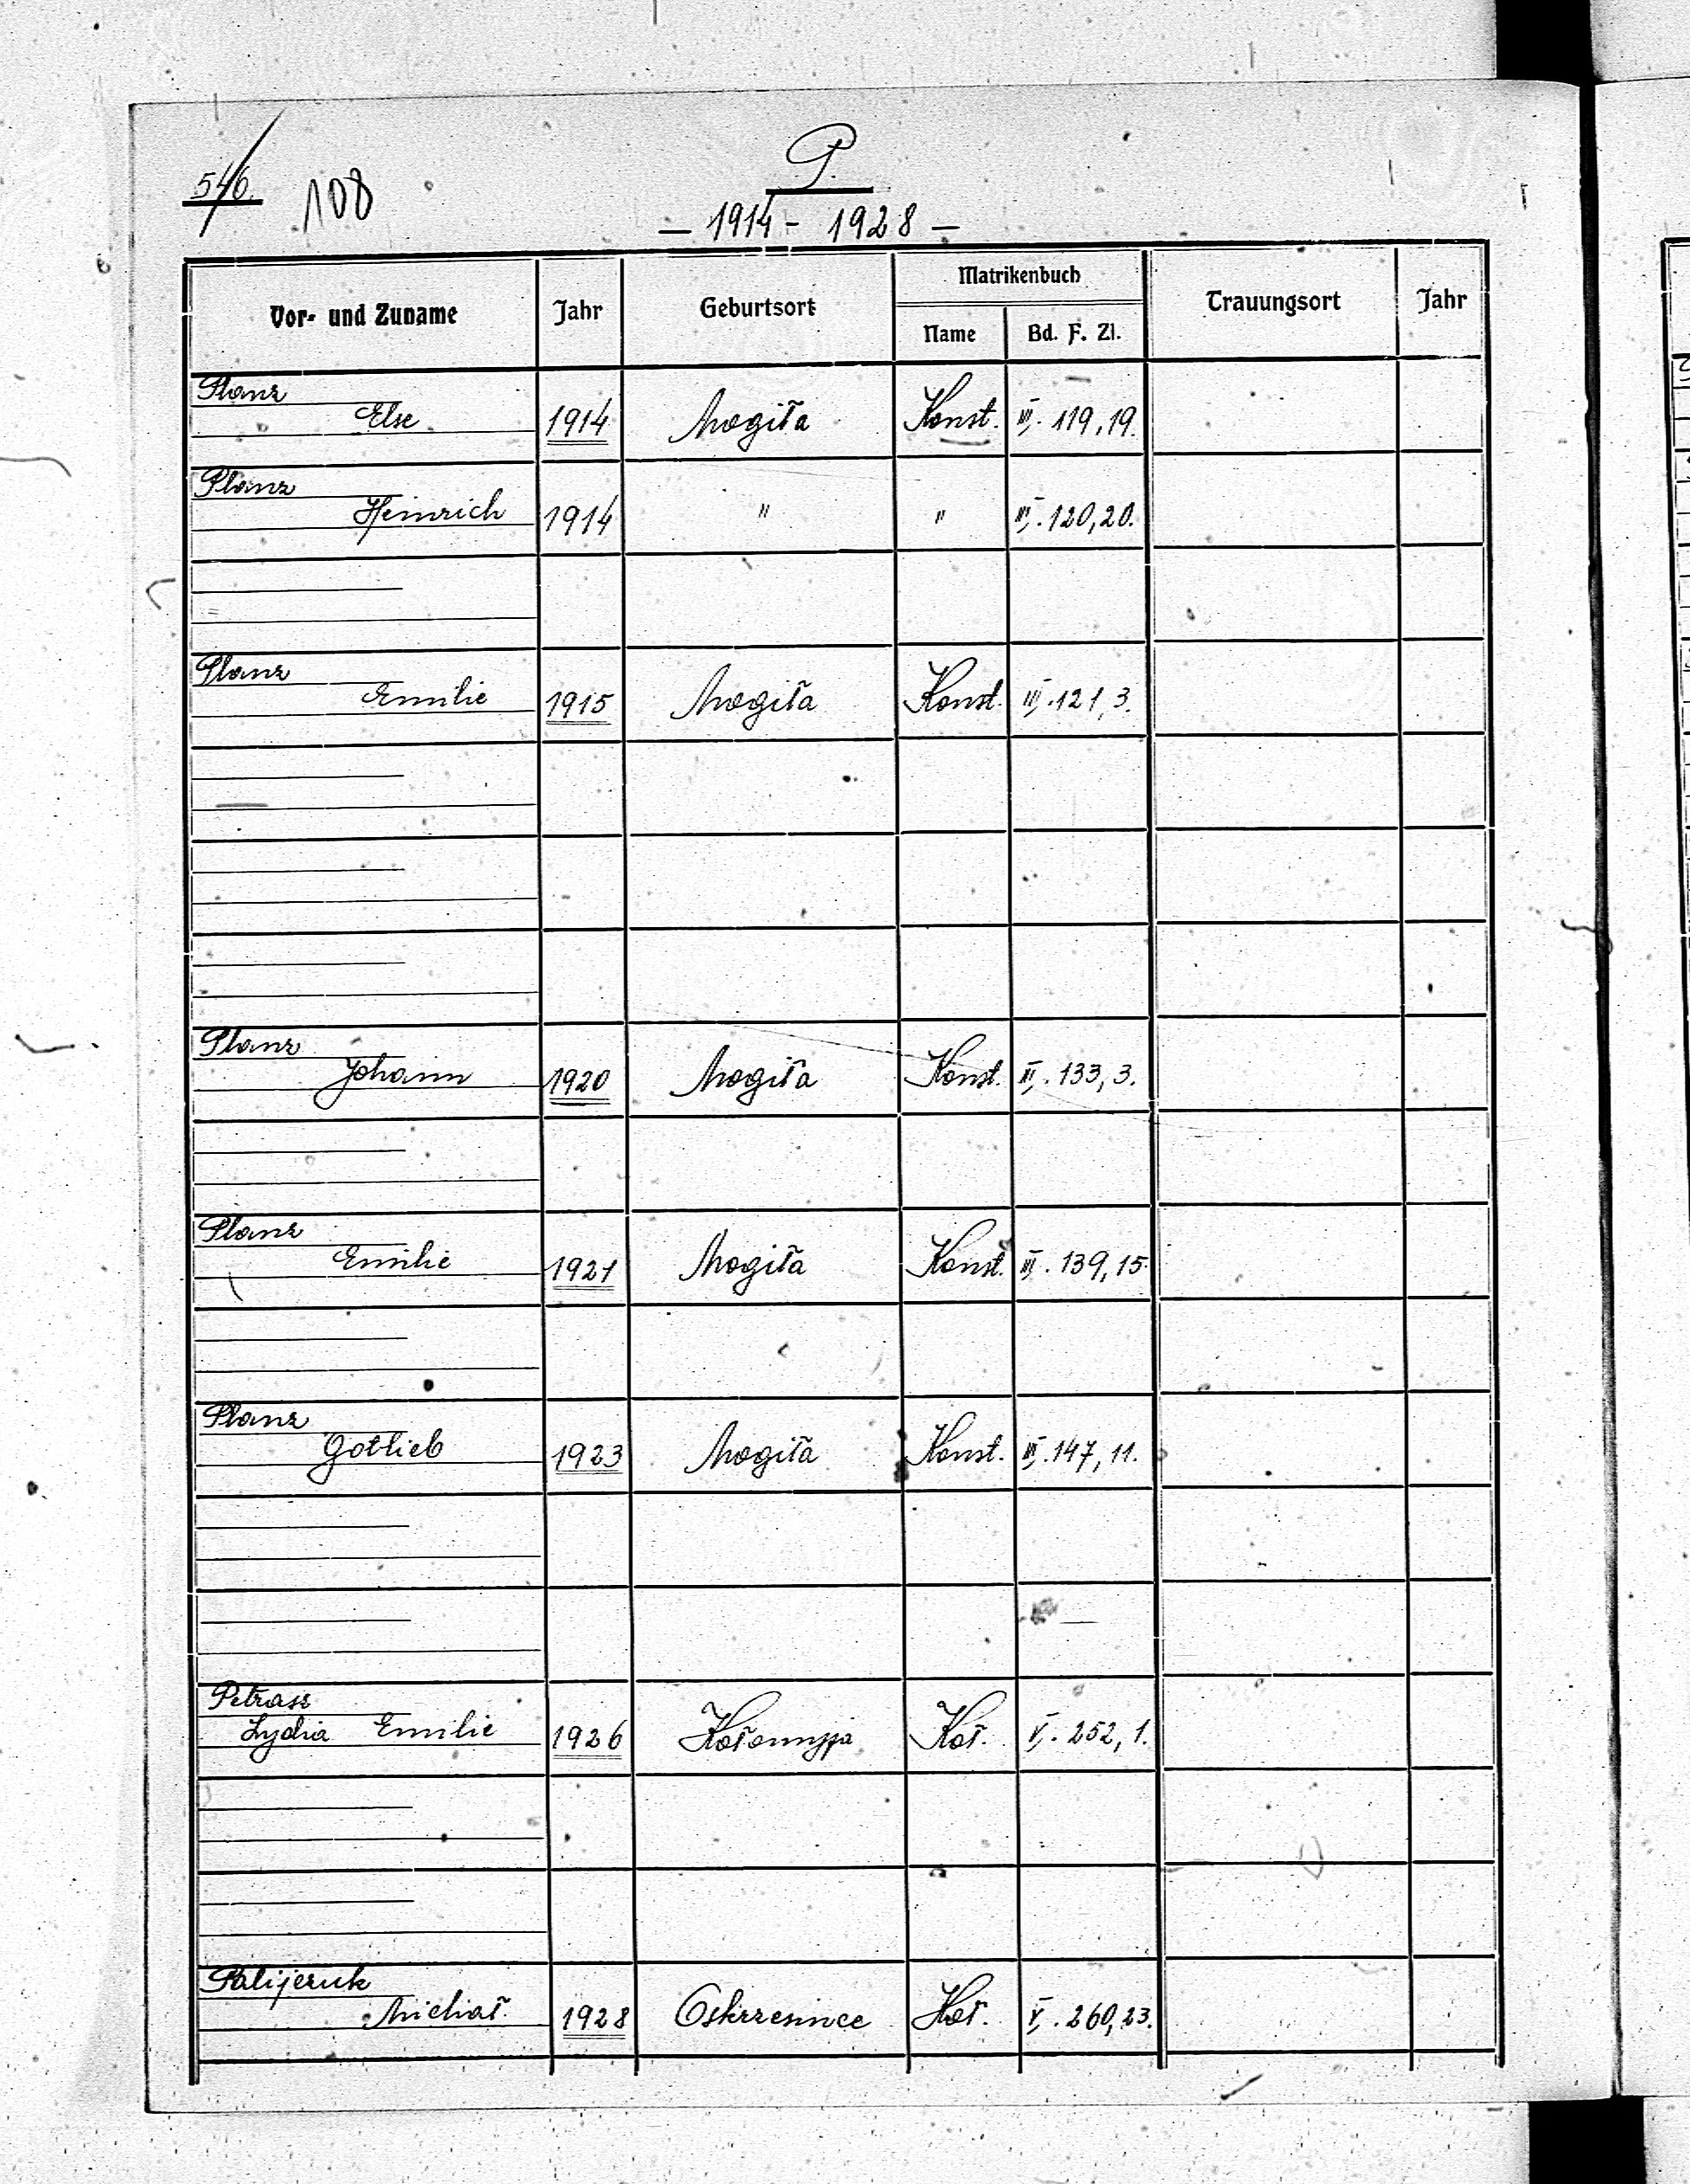 546. 108
P.
— 1914 - 1928 —
Vor- und Zuname Jahr Geburtsort Matrikenbuch Name Bd. F. Zl. Trauungsort Jahr
Planz
Else 1914 Mogiła Konst. III. 119, 19.
Planz
Heinrich 1914 " " III. 120, 20.
Planz
Emilie 1915 Mogiła Konst. III. 121, 3.
Planz
Johann 1920 Mogiła Konst. III. 133, 3.
Planz
Emilie 1921 Mogiła Konst. III. 139, 15.
Planz
Gottlieb 1923 Mogiła Konst. III. 147, 11.
Petrasz
Lydia Emilie 1926 Kołomyja Koł. V. 252, 1.
Palijeruk
Michał. 1928 Oskrzesince Koł. V. 260, 23.